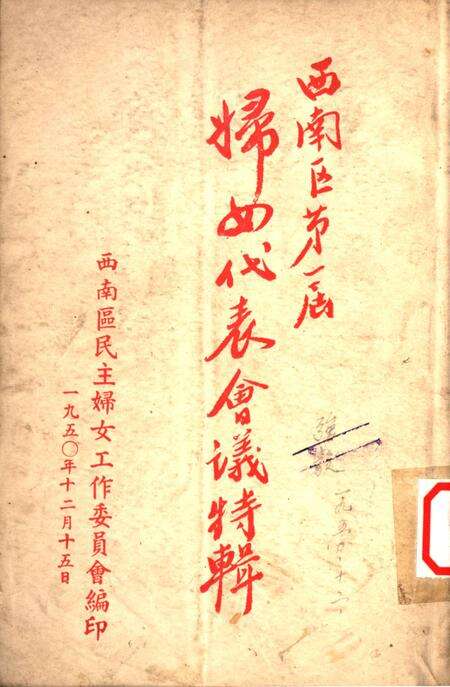 西南区第一届
婦女代表會議特輯
西南區民主婦女工作委員會編印
一九五〇年十二月十五日